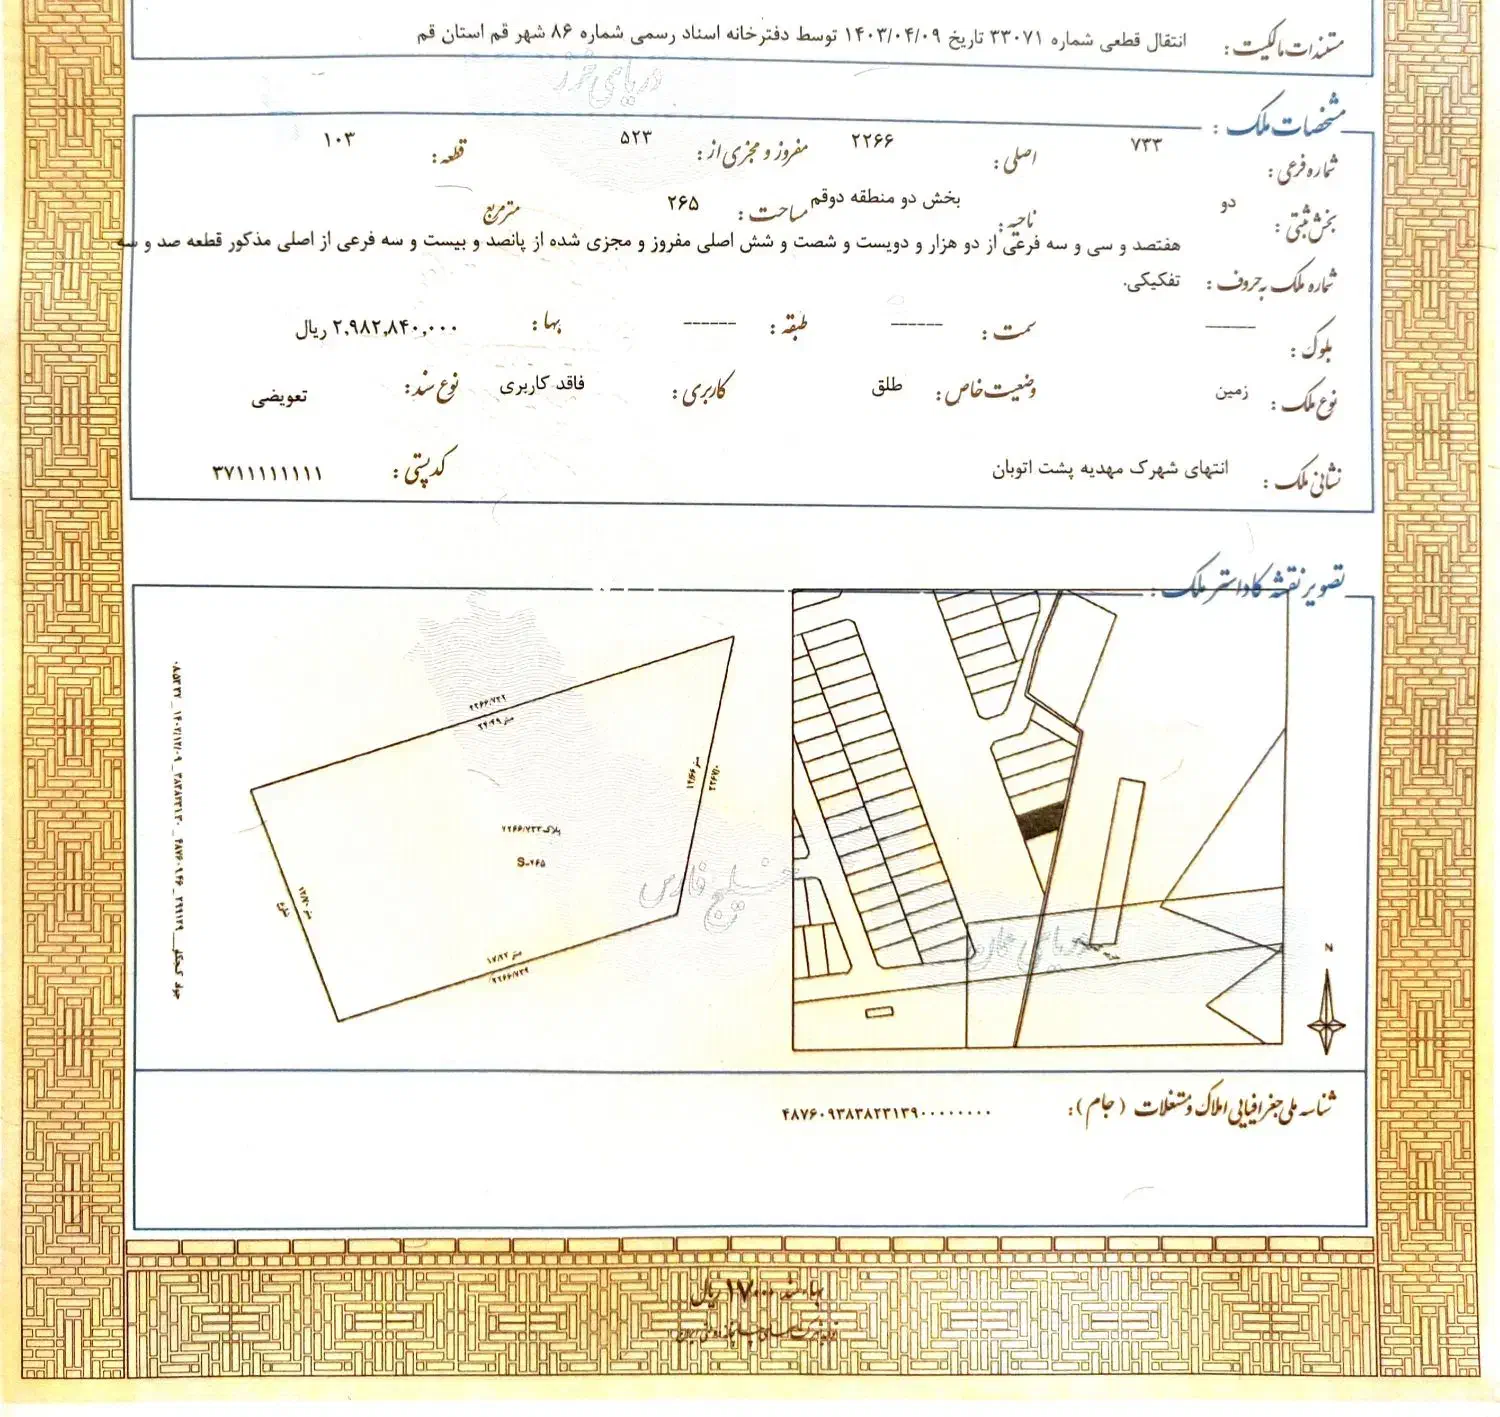 مستندات مالکیت : انتقال قطعی شماره ۳۳۰۷۱ تاریخ ۱۴۰۳/۰۴/۰۹ توسط دفترخانه اسناد رسمی شماره ۸۶ شهر قم استان قم
دریای خزر
مشخصات ملک :
شماره فرعی : ۷۳۳ اصلی : ۲۲۶۶ مفروز و مجزی از : ۵۲۳ قطعه : ۱۰۳
بخش ثبتی : دو ناحیه : بخش دو منطقه دوقم مساحت : ۲۶۵ مترمربع
هفتصد و سی و سه فرعی از دو هزار و دویست و شصت و شش اصلی مفروز و مجزی شده از پانصد و بیست و سه فرعی از اصلی مذکور قطعه صد و سه
شماره ملک به حروف : تفکیکی.
بلوک : ------ سمت : ------ طبقه : ------ بها : ۲,۹۸۲,۸۴۰,۰۰۰ ریال
نوع ملک : زمین وضعیت خاص : طلق کاربری : فاقد کاربری نوع سند : تعویضی
نشانی ملک : انتهای شهرک مهدیه پشت اتوبان کدپستی : ۳۷۱۱۱۱۱۱۱۱
تصویر نقشه کاداستر ملک :
۲۲۶۶/۷۳۲
۲۴/۴۹ متر
۱۴/۶۶ متر
۲۲۶۷/۰
پلاک ۲۲۶۶/۷۳۳
S=۲۶۵
۱۲/۷۰ متر
شارع
۱۷/۸۲ متر
۲۲۶۶/۷۳۹
خلیج فارس
دریای عمان
N
شناسه ملی جغرافیایی املاک و مستغلات (جام) : ۴۸۷۶۰۹۳۸۳۸۲۳۱۳۹۰۰۰۰۰۰۰۰
بهاء سند ۱۷۰۰۰۰ ریال